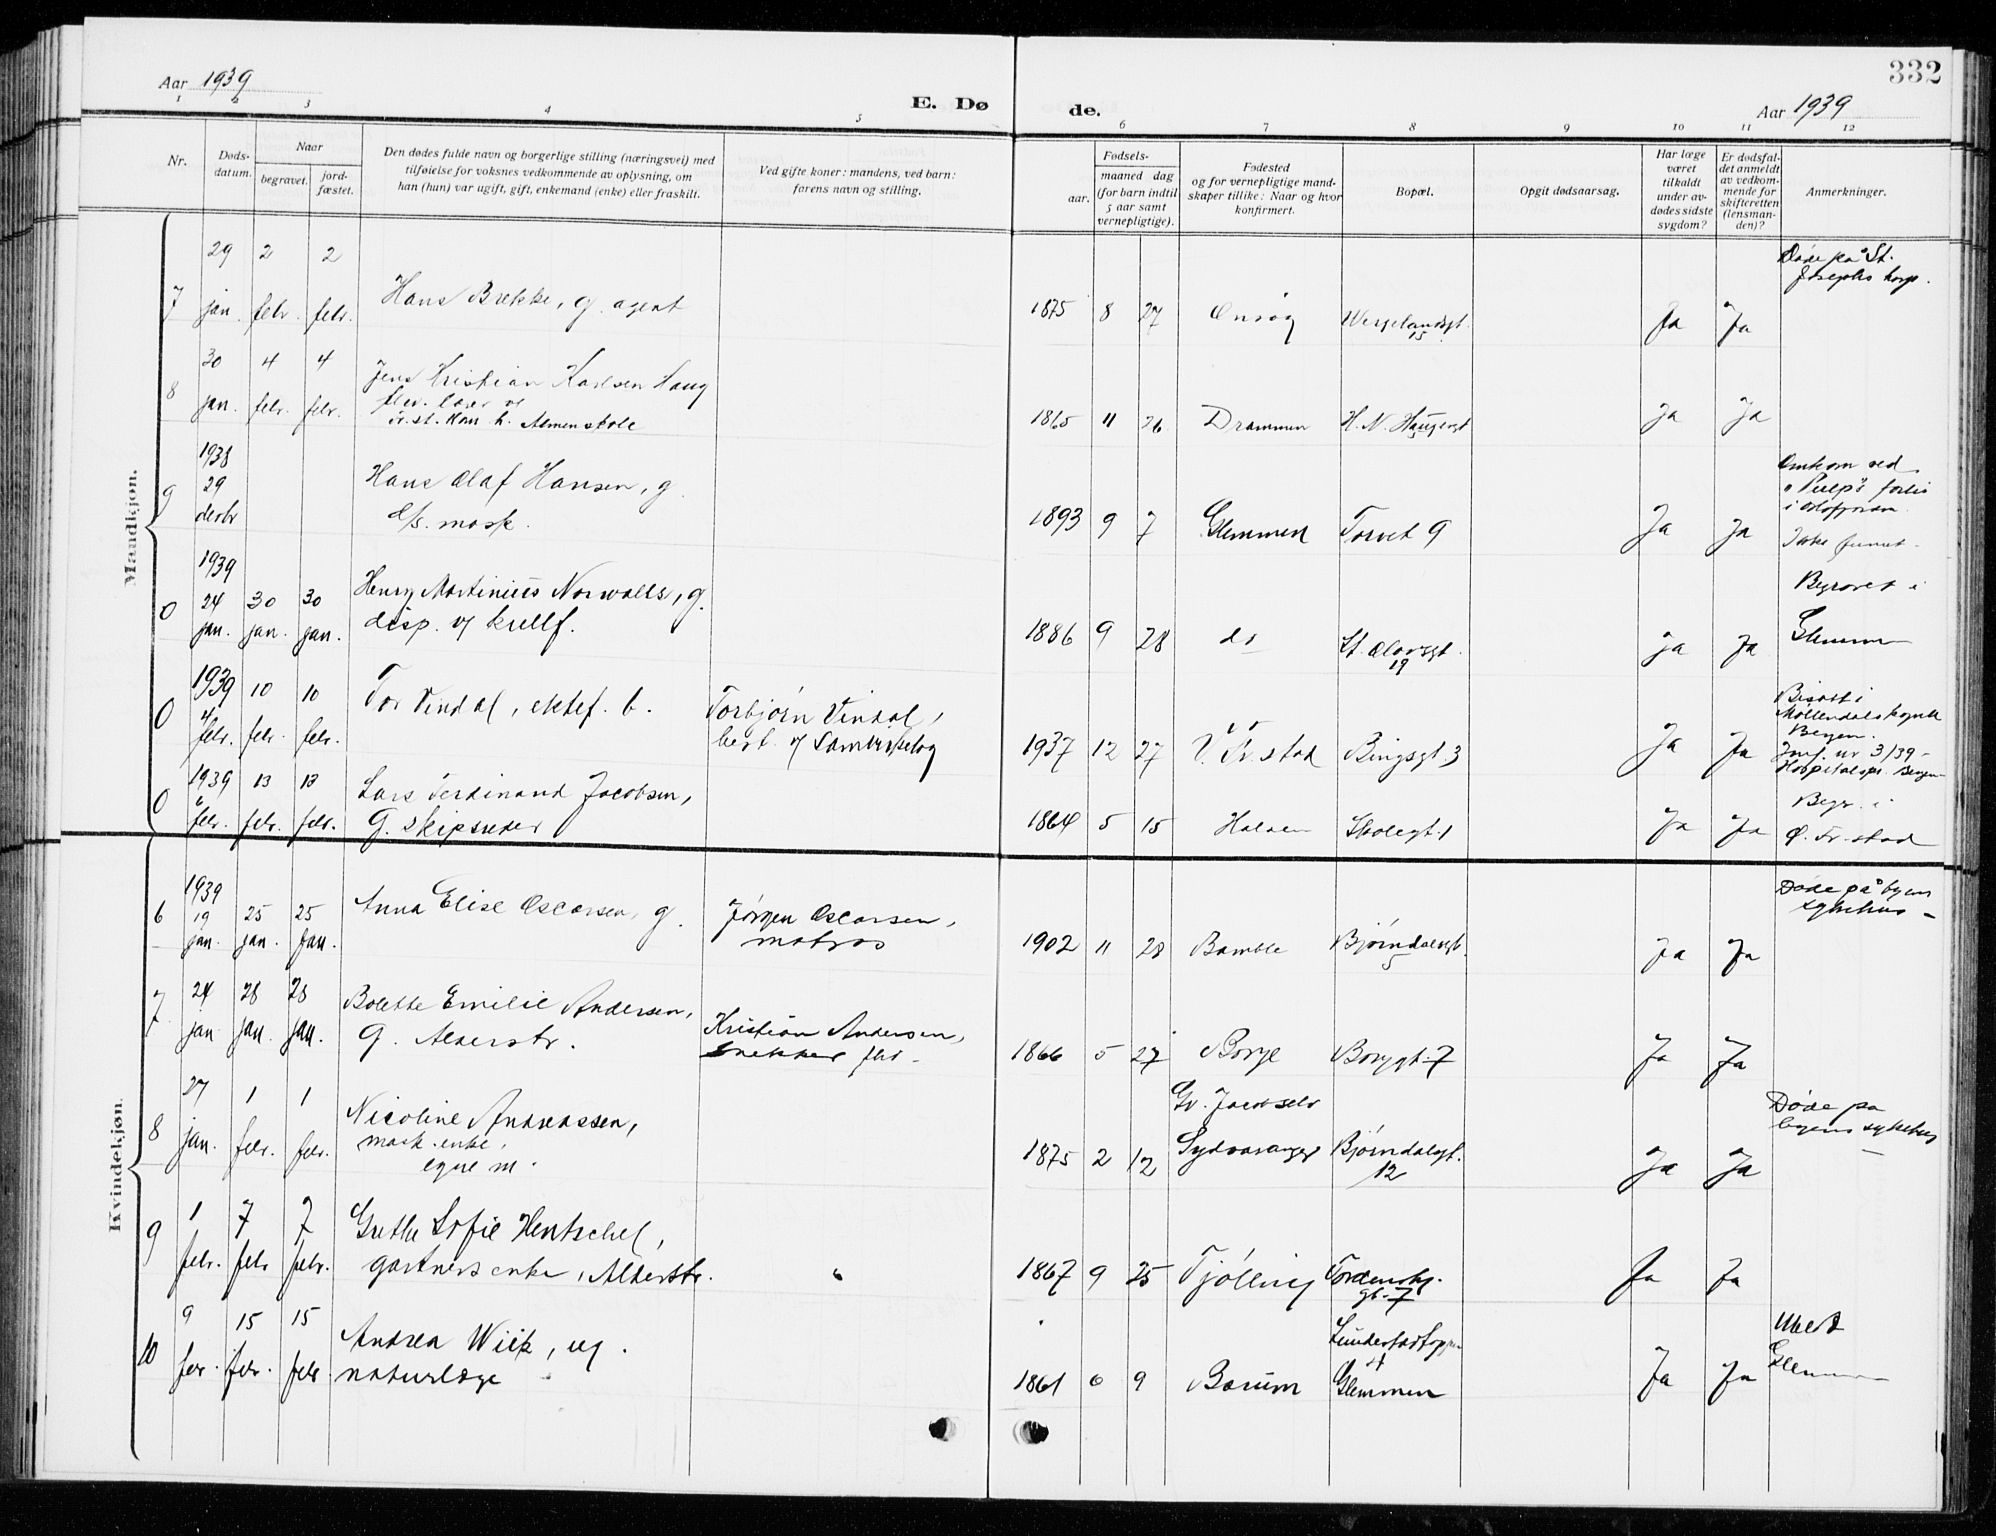 332
Aar 1939
E. Dø
de.
Aar 1939
1 2 3 4 5 6 7 8 9 10 11 12
Nr.
Døds-
datum.
Naar
begravet.
jord-
fæstet.
Den dødes fulde navn og borgerlige stilling (næringsvei) med
tilføielse for voksnes vedkommende av oplysning, om
han (hun) var ugift, gift, enkemand (enke) eller fraskilt.
Ved gifte koner: mandens, ved barn:
farens navn og stilling.
Fødsels-
aar.
maaned dag
(for barn indtil
5 aar samt
vernepligtige).
Fødested
og for vernepligtige mand-
skaper tillike: Naar og hvor
konfirmert.
Bopæl.
Opgit dødsaarsag.
Har læge
været
tilkaldt
under av-
dødes sidste
sygdom?
Er dødsfal-
det anmeldt
av vedkom-
mende for
skifteretten
(lensman-
den)?
Anmerkninger.
Mandkjøn.
7
29 jan.
2 febr.
2 febr.
Hans Brekke, g. agent
1875 8 27
Onsøy
Wergelandsgt.
15
Ja Ja
Døde på St.
Josephs hosp.
8
30 jan.
4 febr.
4 febr.
Jens Kristian Karlsen Haug
h. Almenskole
1865 11 26
Drammen
H. N. Haugesgt
5
Ja Ja
9
1938
29
desbr
Hans Olaf Hansen, g.
d/s. mask.
1893 9 7
Glemmen
Torvet 9
Ja Ja
Omkom ved
"Pulp's" forlis
i Oslofjorden.
Ikke funnet.
0
1939
24 jan.
30 jan.
30 jan.
Henry Martinius Norwalls, g.
disp. v/ kullf.
1886 9 28
do
St. Olavsgt.
19
Ja Ja
Begravet i
Glemmen
0
1939
4 febr.
10 febr.
10 febr.
Tor Vindal, ektef. b.
Torbjørn Vindal,
best. v/ Samvirkelag
1937 12 27
V. Fr.stad
Bingsgt. 3
Ja Ja
Bisatt i
Møllendalskapell
Bergen.
Innf. nr 3/39 -
Hospitalspr. Bergen
0
1939
6 febr.
13 febr.
13 febr.
Lars Ferdinand Jacobsen,
g. skipsreder
1864 5 15
Halden
Skolegt. 1
Ja Ja
Begr. i
Ø. Fr.stad
Kvindekjøn.
6
1939
19 jan.
25 jan.
25 jan.
Anna Elise Oscarsen, g.
Jørgen Oscarsen,
matros
1902 11 28
Bamble
Bjørndalsgt.
5
Ja Ja
Døde på byens
sykehus -
7
24 jan
28 jan.
28 jan.
Bolette Emilie Andersen,
g. Alderstr.
Kristian Andersen,
snekker
1866 5 27
Borge
Borggt. 7
Ja Ja
8
27 jan.
1 febr.
1 febr.
Nicoline Andreassen,
mask. enke,
egne m.
1875 2 12
Gr. Jacobselv
Sydvaranger
Bjørndalsgt.
12
Ja Ja
Døde på
byens sykehus
9
1 febr.
7 febr
7 febr.
Grethe Sofie Hentschel,
gartners enke, Alderstr.
1867 9 25
Tjølling
Tordenskj.
gt. 7
Ja Ja
10
9 febr.
15 febr.
15 febr
Andrea Wiik, ug.
naturlæge
1861 6 9
Bærum
Glemmen
Ja Ja
Glemmen